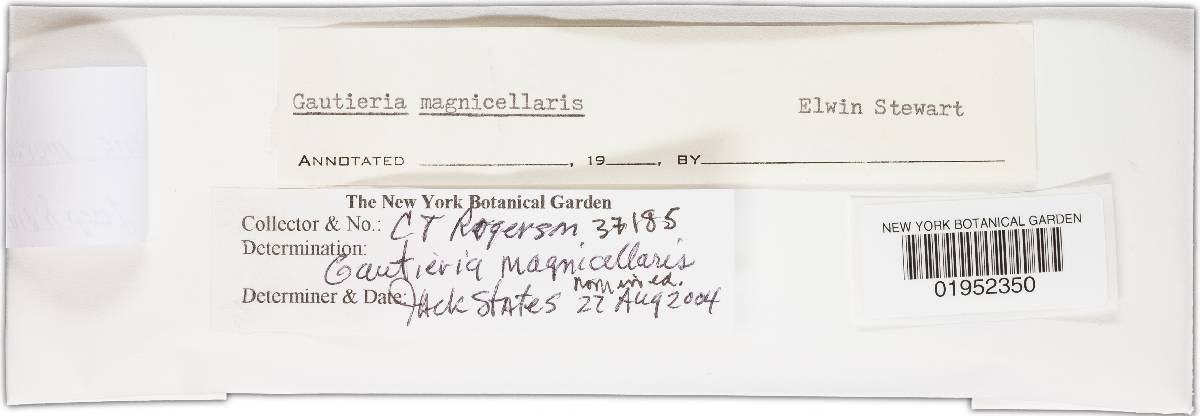 Gautieria magnicellaris Elwin Stewart
ANNOTATED ____________, 19____, BY____________
The New York Botanical Garden
Collector & No.: CT Rogerson 37185
Determination:
Gautieria magnicellaris
nom in ed.
Determiner & Date: Jack States 22 Aug 2004
NEW YORK BOTANICAL GARDEN
01952350